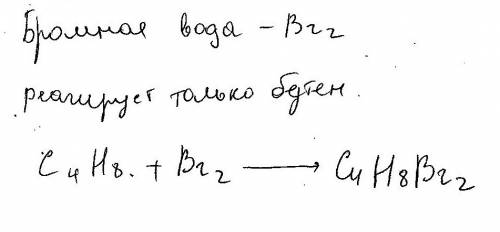 Бромная вода - Br2
реагирует только бутен.
C4H8. + Br2 ⟶ C4H8Br2